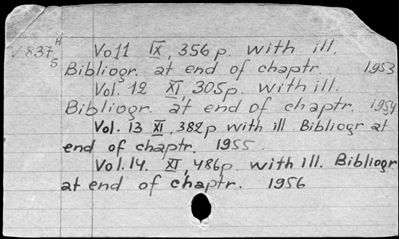 V837 H Vol1 IX, 356 p. with ill.
S Bibliogr. at end of chaptr. 1953
Vol. 12 XI, 305p. with ill.
Bibliogr. at end of chaptr. 1954
Vol. 13 XI, 382p with ill Bibliogr at
end of chaptr. 1955.
Vol. 14. XI, 486p. with ill. Bibliogr
at end of chaptr. 1956